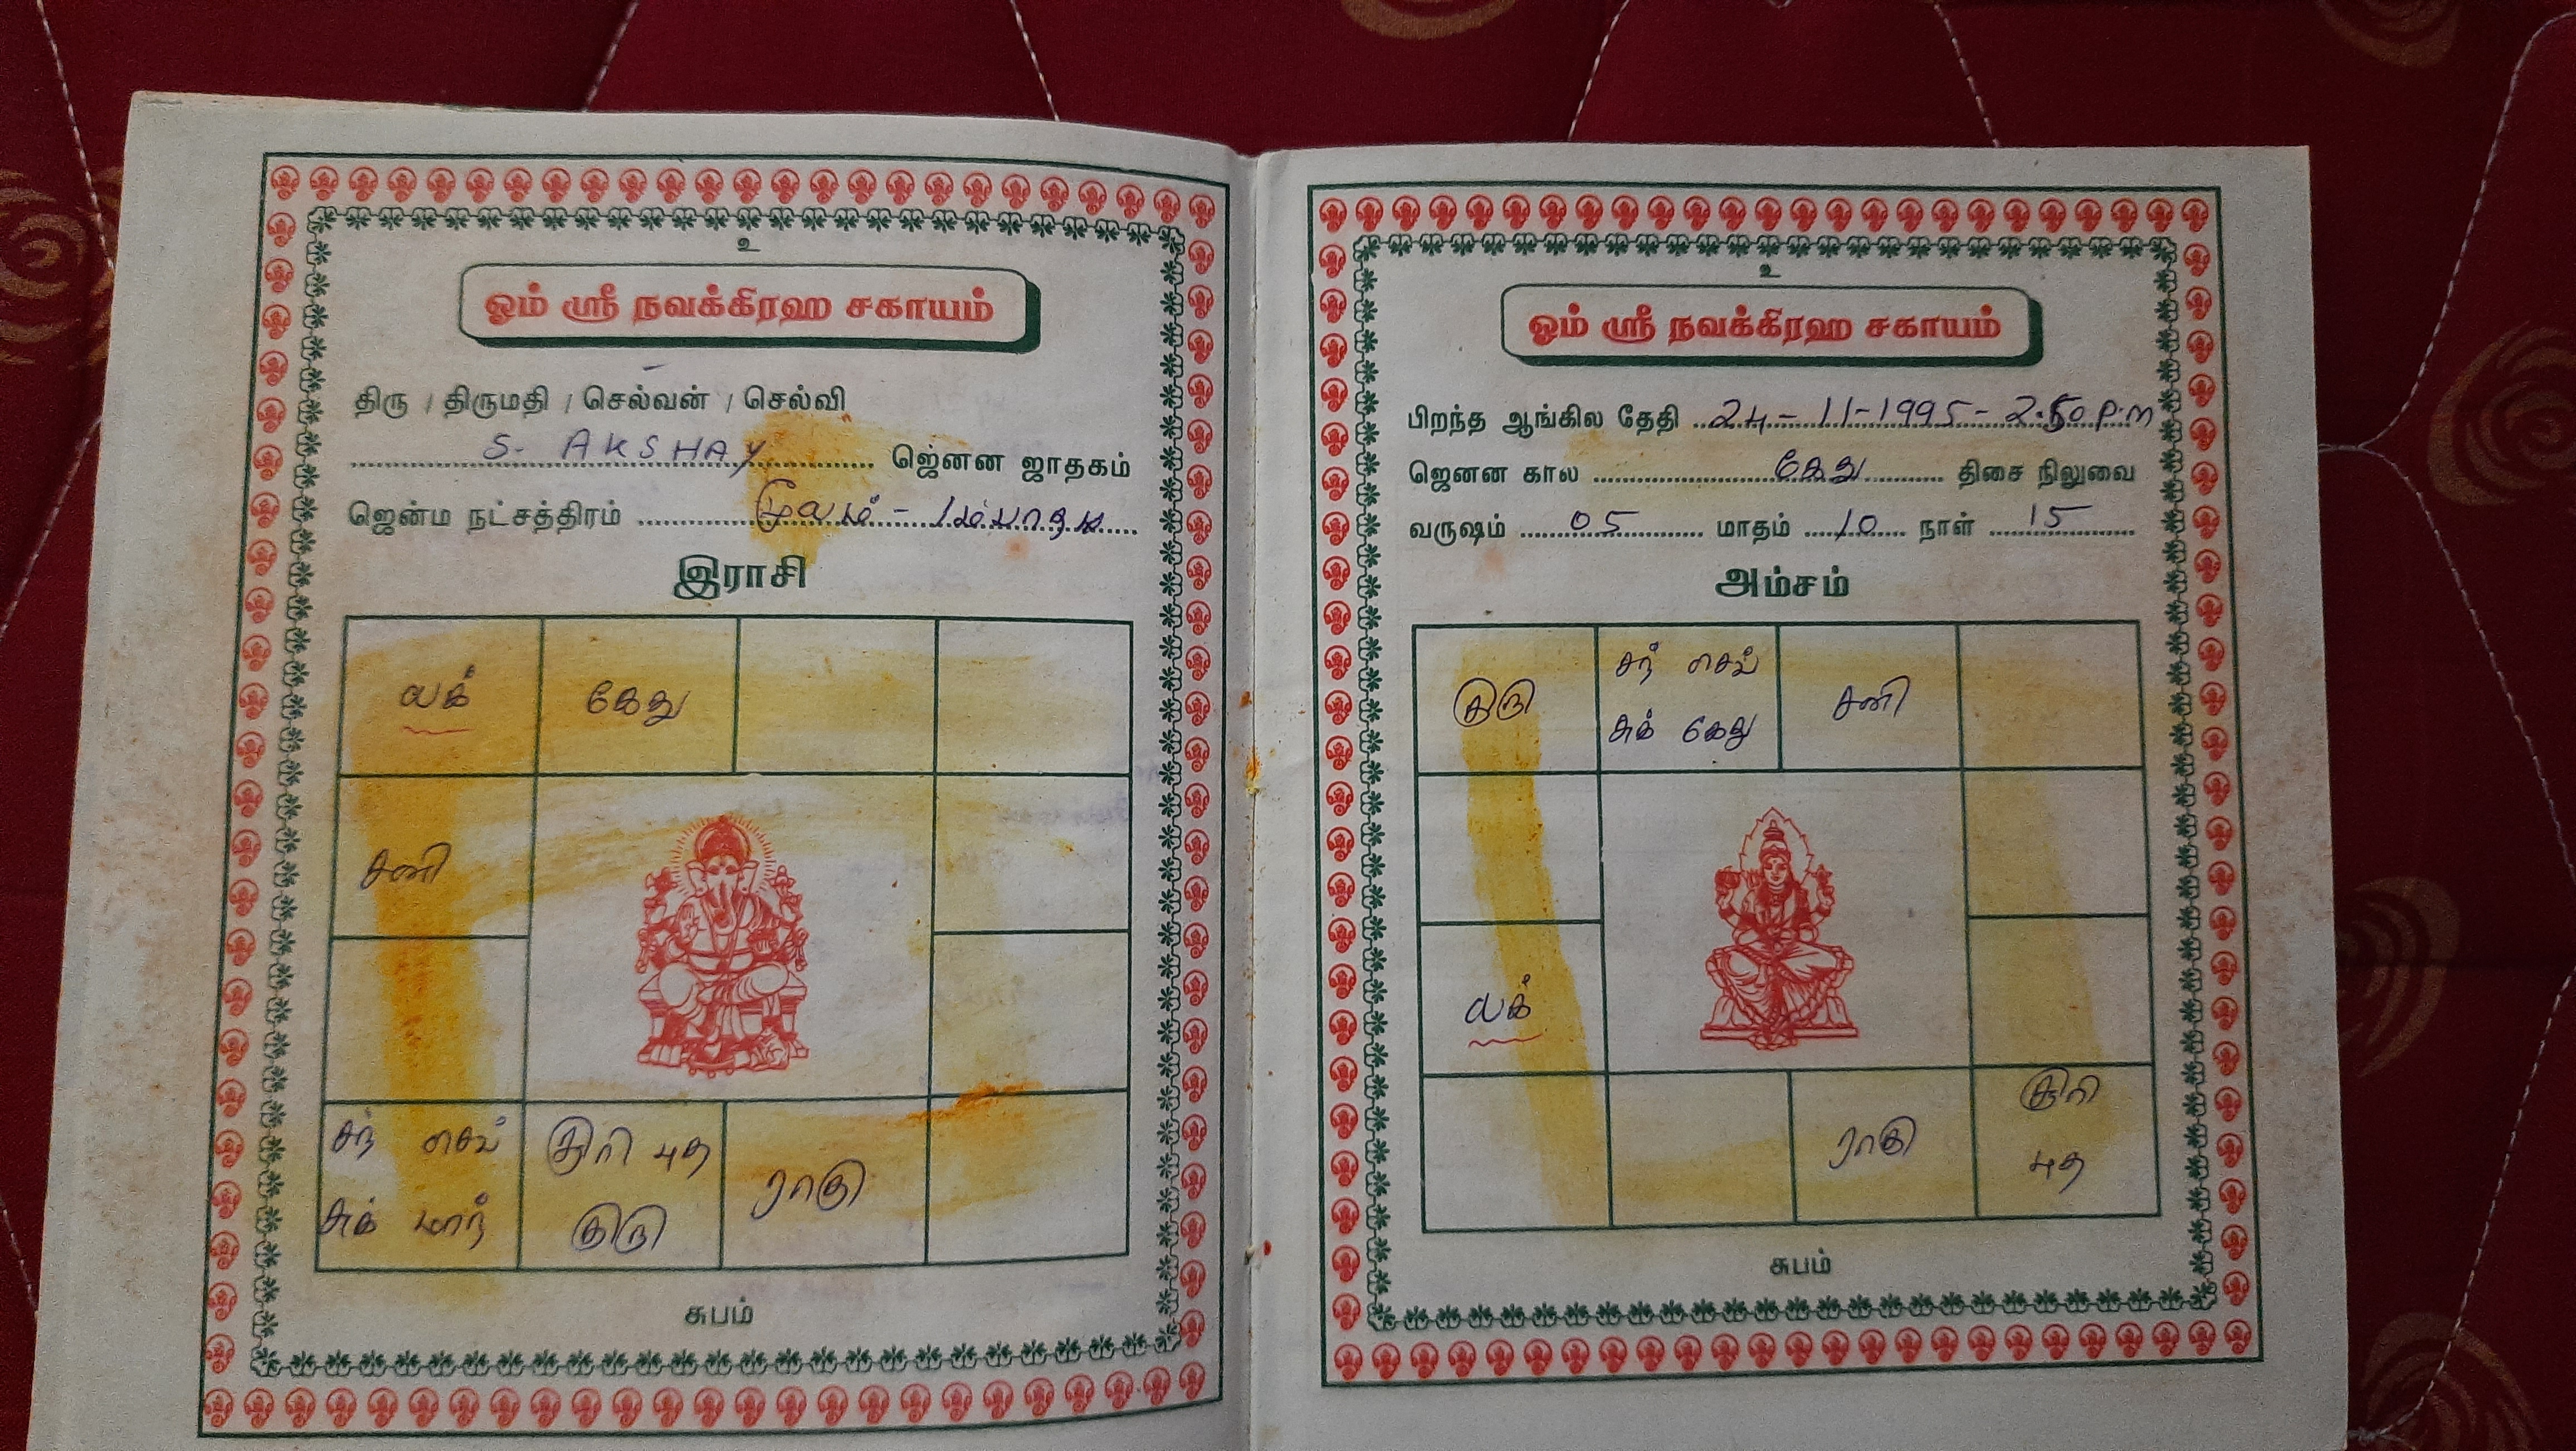 உ
ஓம் ஸ்ரீ நவக்கிரஹ சகாயம்
திரு / திருமதி / செல்வன் / செல்வி
S. AKSHAY ஜெனன ஜாதகம்
ஜென்ம நட்சத்திரம் மூலம் - 1ம் பாதம்
இராசி
லக்
கேது
சனி
சந் செவ்
சுக் மாந்
சூரி புத
குரு
ராகு
சுபம்
உ
ஓம் ஸ்ரீ நவக்கிரஹ சகாயம்
பிறந்த ஆங்கில தேதி 24-11-1995-2.50 P.m
ஜெனன கால கேது திசை நிலுவை
வருஷம் 05 மாதம் 10 நாள் 15
அம்சம்
குரு
சந் செவ்
சுக் கேது
சனி
லக்
ராகு
சூரி
புத
சுபம்